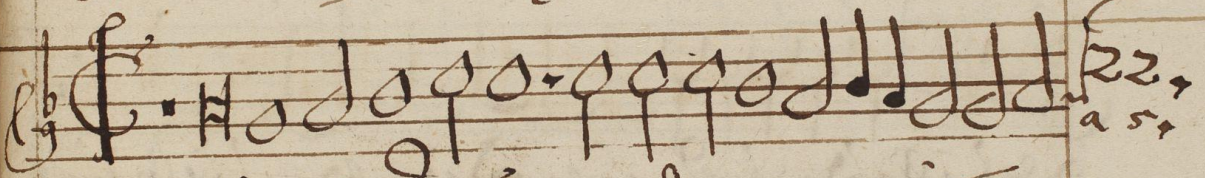 22,
a 5.